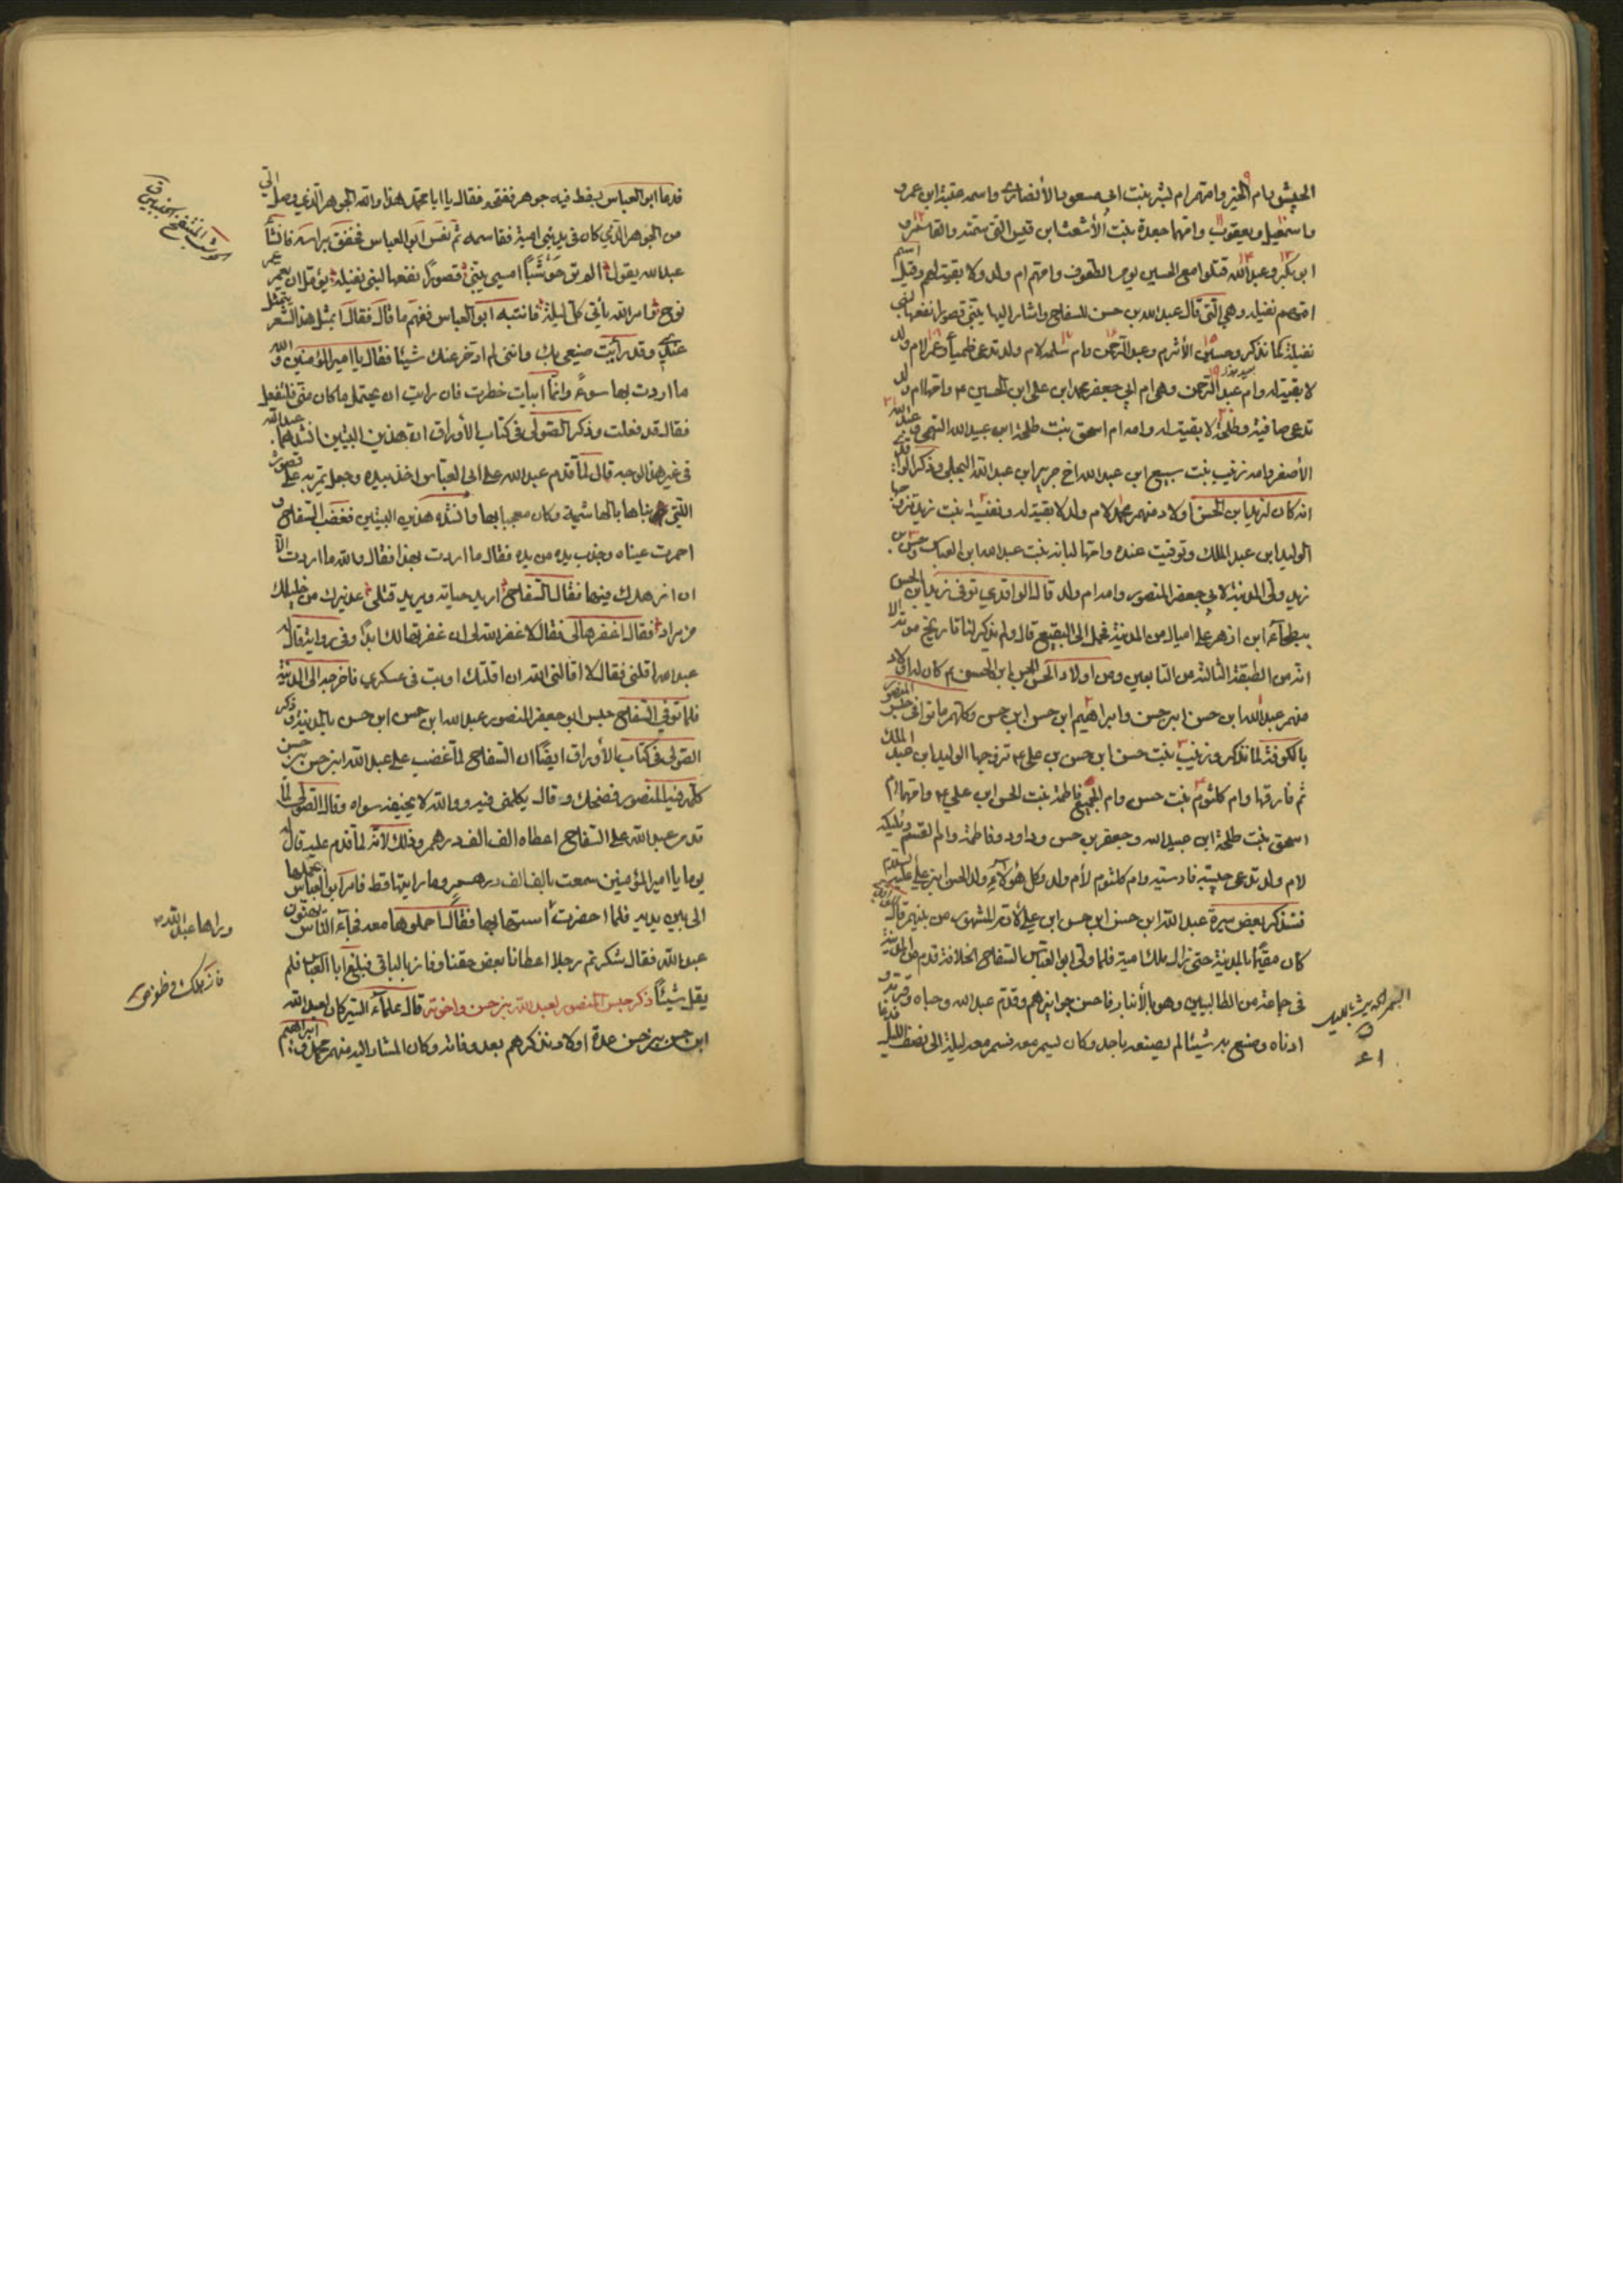 الحسن وام الخير وامهم ام بشر بنت ابي مسعود الأنصاري واسمه عقبة ابن عمرو
واسمعيل ويعقوب وامهما جعدة بنت الأشعث ابن قيس التي سمته والقاسم و
ابو بكر وعبدالله قتلوا مع الحسين يوم الطفوف وامهم ام ولد ولا بقية لهم وقيل اسم
امهم نفيله وهي التي قال عبدالله بن حسن للسفاح واشار اليها يبني قصورا نفعها لبني
نفيلة لما نذكر وحسين الأثرم وعبد الرحمن وام سلمه لام ولد تدعى ظمياء وعمر لام ولد
لا بقية له وام عبد الرحمن وهي ام ابي جعفر محمد ابن علي ابن الحسين ع وامها ام ولد
تدعى صافية وطلحة لا بقية له وامه ام اسحق بنت طلحة ابن عبيد الله التيمي وعبدالله
الأصغر وامه زينب بنت سبيع ابن عبد الله اخ جرير ابن عبد الله البجلي وذكر الوا
انه كان لزيد ابن الحسن اولاد منهم محمد لام ولد لا بقية له ونفيسة بنت زيد تزوجها
الوليد ابن عبد الملك وتوفيت عنده وامها لبانه بنت عبدالله ابن العباس وحسن بن
زيد ولي المدينة لابي جعفر المنصور وامه ام ولد قال الواقدي توفي زيد ابن الحسن
ببطحاء ابن ازهر على اميال من المدينة فحمل الى البقيع قال ولم يذكر لنا تاريخ موته الا
انه من الطبقة الثالثة من التابعين ومن اولاد الحسن الحسن ابن الحسن ع كان له اولاد
منهم عبدالله ابن حسن ابن حسن وابراهيم ابن حسن ابن حسن وكلهم ماتوا في حبس المنصور
بالكوفة لما نذكر وزينب بنت حسن ابن حسن بن علي ع تزوجها الوليد ابن عبد الملك
ثم فارقها وام كلثوم بنت حسن وامهم فاطمة بنت الحسن ابن علي ع وامها ام
اسحق بنت طلحة ابن عبيد الله وجعفر بن حسن وداود وفاطمة وام القسم ومليكه
لام ولد تدعى حبيبة فارسية وام كلثوم لأم ولد وكل هؤلاء ولد الحسن ابن علي عليه السلام
فنذكر بعض سيرة عبد الله ابن حسن ابن حسن ابن علي لانه المشهور من بينهم قال
كان مقيما بالمدينة حتى زال ملك امية فلما ولي ابو العباس السفاح الخلافة قدم من المدينة
في جماعة من الطالبيين وهو بالأنبار فاحسن جوايزهم وقدم عبد الله وحباه وقربه و
ادناه وصنع به شيئا لم يصنعه باحد وكان يسمر معه فسمر معه ليلة الى نصف الليل فدعا
السمر الحديث بالليل
قدعا ابو العباس بسفط فيه جوهر ففتحه فقال يا ابا محمد هذا والله الجوهر الذي وصل الي
من الجوهر الذي كان في يد بني امية فقاسمه ثم نعس ابو العباس فخفق براسه فانشأ
عبدالله يقول الم تر حوشبا امسى يبني قصورا نفعها لبني نفيلة يؤمل ان يعمر عمر
نوح وامر الله يأتي كل ليلة فانتبه ابو العباس ففهم ما قال فقال بمثل هذا الشعر يتمثل
عندي وقد رأيت صنيعي بك وانني لم ادخر عنك شيئا فقال يا امير المؤمنين والله
ما اردت بها سوء وانما ابيات خطرت فان رايت ان يحتمل ما كان مني فلتفعل
فقال قد فعلت وذكر الصولي في كتاب الأوراق ان هذين البيتين انشدهما عبدالله
في غير هذا الوجه قال لما قدم عبد الله على ابي العباس اخذ بيده وجعل يمر به على قصوره
اللتي بناها بالهاشمية وكان معجبا بها فانشد هذين البيتين فغضب السفاح و
احمرت عيناه وجذب يده من يده فقال ما اردت بهذا فقال والله ما اردت الا
ان ازهدك فيها فقال السفاح اريد حياته ويريد قتلي عذيرك من خليلك
من مراد فقال اغفرها لي فقال لا غفر الله لي ان غفرتها لك ابدا وفي رواية قال له
عبدالله اقلني فقال لا اقالني الله ان اقلتك او بت في عسكري فاخرجه الى المدينة
فلما توفي السفاح حبس ابو جعفر المنصور عبدالله ابن حسن ابن حسن بالمدينة وذكر
الصولي في كتاب الأوراق ايضا ان السفاح لما غضب على عبدالله ابن حسن بن حسن
كلمه فيه المنصور فضحك وقال يكلمني فيه ووالله لا يخيفه سواه وقال الصولي لما
قدم عبدالله على السفاح اعطاه الف الف درهم وذلك لأنه لما قدم عليه قال له
يوما يا امير المؤمنين سمعت بالف الف درهم وما رايتها قط فامر ابو العباس بحملها
الى بين يديه فلما احضرت استهابها فقال احملوها معه فجاء الناس يهنون
عبدالله فقال شكرتم رجلا اعطانا بعض حقنا وفاز بالباقي فبلغ ابا العباس فلم
يقل شيئا ذكر حبس المنصور لعبد الله بن حسن واخوته قال علماء السير كان لعبد الله
ابن حسن بن حسن عدة اولاد نذكرهم بعد وفاته وكان المشار اليه منهم محمد وابراهيم
حوشب المنتفخ الجنبين
وراها عبدالله